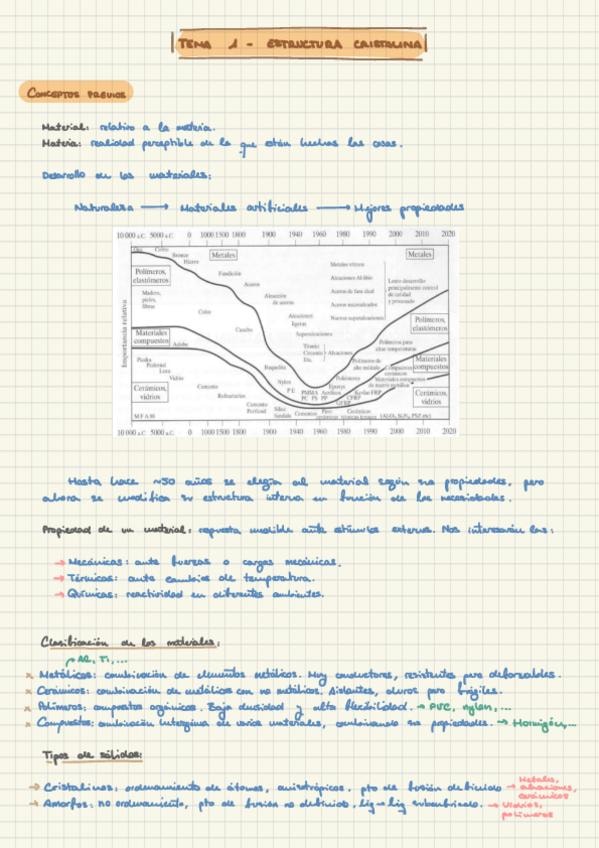 TEMA 1 - ESTRUCTURA CRISTALINA
CONCEPTOS PREVIOS
Material: relativo a la materia.
Materia: realidad perceptible de la que están hechas las cosas.
Desarrollo de los materiales:
Naturaleza → Materiales artificiales → Mejores propiedades
10 000 a.C. 5000 a.C. 0 1000 1500 1800 1900 1940 1960 1980 1990 2000 2010 2020
Oro Cobre
Bronce
Hierro
Metales
Metales
Polímeros, elastómeros
Madera, pieles, fibras
Fundición
Aceros
Aleación de aceros
Cobre
Caucho
Aleaciones ligeras
Superaleaciones
Titanio
Circonio
Etc.
Aleaciones
Metales vítreos
Aleaciones Al-litio
Aceros de fase dual
Aceros microaleados
Nuevas superaleaciones
Lento desarrollo principalmente control de calidad y procesado
Importancia relativa
Materiales compuestos
Adobe
Piedra
Pedernal
Loza
Vidrio
Cerámicos, vidrios
M.F.A 90
Cemento
Refractarios
Cemento Portland
Baquelita
Nylon
P E
PMMA
PC PS PP
Acrílicos
Epoxys
Poliésteres
Polímeros de alto módulo
Polímeros para altas temperaturas
Polímeros, elastómeros
Materiales compuestos
Cerámicos, vidrios
Kevlar-FRP
CFRP
GFRP
Compuestos cerámicos
Materiales compuestos de matriz metálica
Sílice fundida
Cermets
Piro-cerámicos
Cerámicos tenaces (Al₂O₃, Si₃N₄, PSZ etc)
10 000 a.C. 5000 a.C. 0 1000 1500 1800 1900 1940 1960 1980 1990 2000 2010 2020
Hasta hace ~50 años se elegía al material según sus propiedades, pero
ahora se modifica su estructura interna en función de las necesidades.
Propiedad de un material: respuesta medible ante estímulos externos. Nos interesarán las:
→ Mecánicas: ante fuerzas o cargas mecánicas.
→ Térmicas: ante cambios de temperatura.
→ Químicas: reactividad en diferentes ambientes.
Clasificación de los materiales:
Al, Ti,...
× Metálicos: combinación de elementos metálicos. Muy conductores, resistentes pero deformables.
× Cerámicos: combinación de metálicos con no metálicos. Aislantes, duros pero frágiles.
× Polímeros: compuestos orgánicos. Baja densidad y alta flexibilidad. → PVC, nylon,...
× Compuestos: combinación heterogénea de varios materiales, combinando sus propiedades. → Hormigón,...
Tipos de sólidos:
→ Cristalinos: ordenamiento de átomos, anisotrópicos, pto de fusión definido → Metales, aleaciones, cerámicos
→ Amorfos: no ordenamiento, pto de fusión no definido, liq → liq subenfriado. → Vidrios, polímeros